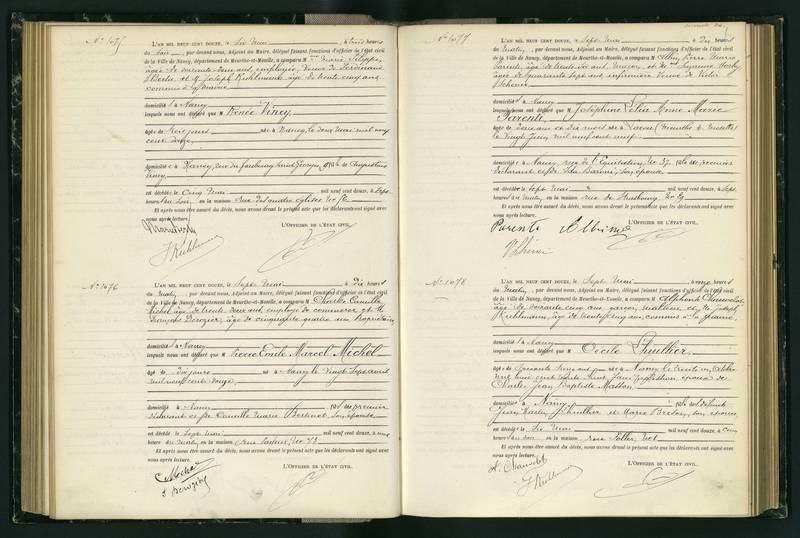 N° 1075
L'AN MIL NEUF CENT DOUZE, le Six Mai à trois heures
du soir, par devant nous, Adjoint au Maire, délégué faisant fonctions d'officier de l'État civil
de la Ville de Nancy, département de Meurthe-et-Moselle, a comparu M Marie
âgée de soixante deux ans, employée, Veuve de Ferdinand
et M Joseph Kühlmann, âgé de trente cinq ans
commis à la Mairie
domicilié à Nancy
lesquels nous ont déclaré que M Renée Viney
âgée de trois jours née à Nancy, le deux Mai mil neuf
cent douze
domiciliée à Nancy, rue du faubourg Saint Georges, fille de
Viney
est décédée le Cinq Mai mil neuf cent douze, à sept
heures du soir, en la maison rue des quatre églises
Et après nous être assuré du décès, nous avons dressé le présent acte que les déclarants ont signé avec
nous après lecture.
L'OFFICIER DE L'ÉTAT CIVIL.
J Kühlmann
N° 1076
L'AN MIL NEUF CENT DOUZE, le Sept Mai à Dix heures
du Matin, par devant nous, Adjoint au Maire, délégué faisant fonctions d'officier de l'État civil
de la Ville de Nancy, département de Meurthe-et-Moselle, a comparu M Charles Camille
Michel âgé de trente deux ans, employé de commerce, et M
François âgé de cinquante quatre ans
domicilié à Nancy
lesquels nous ont déclaré que M Pierre Emile Marcel Michel
âgé de dix jours né à Nancy le Vingt sept avril
mil neuf cent douze
domicilié à Nancy fils du premier
déclarant et de Camille Marie son épouse
est décédé le Sept Mai mil neuf cent douze, à une
heure du matin, en la maison rue
Et après nous être assuré du décès, nous avons dressé le présent acte que les déclarants ont signé avec
nous après lecture.
L'OFFICIER DE L'ÉTAT CIVIL.
C Michel
N° 1077
L'AN MIL NEUF CENT DOUZE, le Sept Mai à Dix heures
du Matin, par devant nous, Adjoint au Maire, délégué faisant fonctions d'officier de l'État civil
de la Ville de Nancy, département de Meurthe-et-Moselle, a comparu M Albin Marie
Parenti, âgé de trente six ans, maçon, et
âgée de quarante sept ans, infirmière Veuve de Victor
domicilié à Nancy
lesquels nous ont déclaré que M Joséphine Anne Marie
Parenti
âgée de deux ans et dix mois née à Laxou (Meurthe & Moselle)
le Vingt Juin mil neuf cent neuf
domiciliée à Nancy, rue de l'Equitation, No 37 fille du premier
déclarant et de Baroni, son épouse
est décédée le Sept Mai mil neuf cent douze, à Sept
heures du matin, en la maison rue de Strasbourg
Et après nous être assuré du décès, nous avons dressé le présent acte que les déclarants ont signé avec
nous après lecture.
L'OFFICIER DE L'ÉTAT CIVIL.
Parenti Albino
N° 1078
L'AN MIL NEUF CENT DOUZE, le Sept Mai à onze heures
du Matin, par devant nous, Adjoint au Maire, délégué faisant fonctions d'officier de l'État civil
de la Ville de Nancy, département de Meurthe-et-Moselle, a comparu M Alphonse
âgé de soixante cinq ans, garçon et M Joseph
Kühlmann, âgé de trente cinq ans, commis à la Mairie
domicilié à Nancy
lesquels nous ont déclaré que M Cécile Lhuillier
âgée de soixante ans née à Nancy le trente un octobre
mil huit cent sans profession, épouse de
Charles Jean Baptiste Masson
domiciliée à Nancy fille de défunts
Jean Lhuillier et Marie son épouse
est décédée le Six Mai mil neuf cent douze, à
heures du soir, en la maison rue
Et après nous être assuré du décès, nous avons dressé le présent acte que les déclarants ont signé avec
nous après lecture.
L'OFFICIER DE L'ÉTAT CIVIL.
J Kühlmann